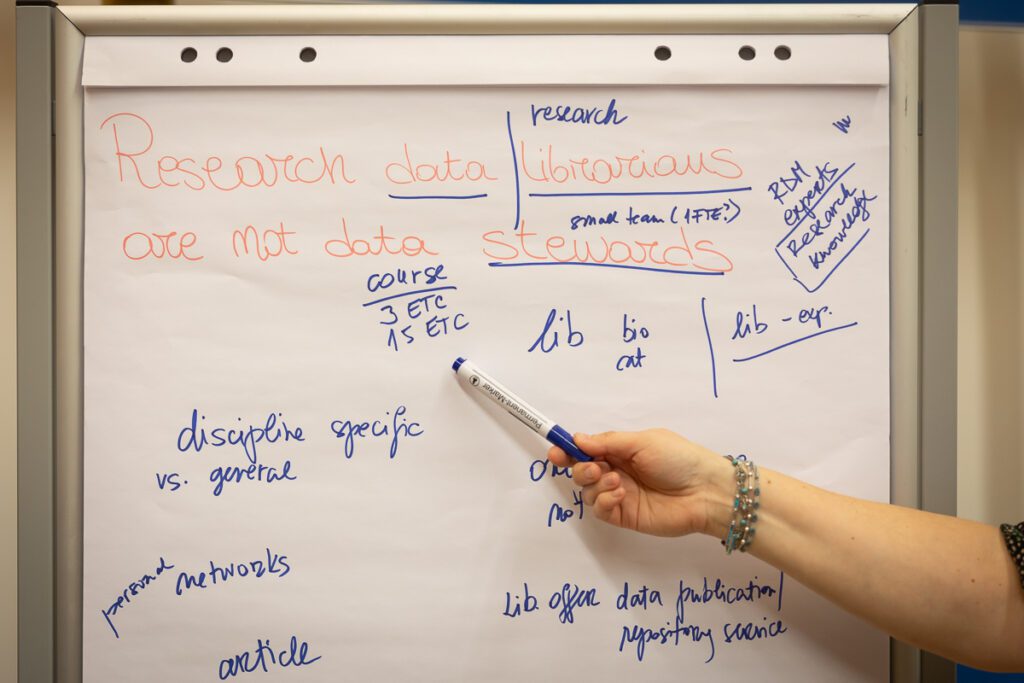 research
Research data librarians
small team (1FTE?)
are not data stewards
RDM
experts
Research
knowledge
course
3 ETC
15 ETC
lib bio
cat
lib - exp.
Permanent-Marker
discipline specific
vs. general
not
personal networks
article
Lib. offer data publication/
repository service